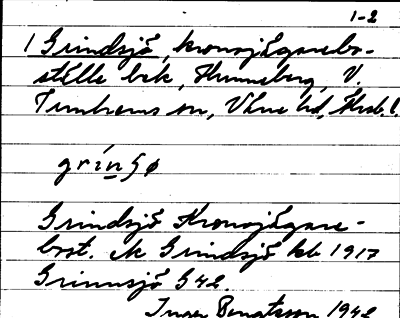 1-2
1 Grindsjö, kronojägarebo-
ställe bek, Hunneberg, V.
Tunhems sn, Väne hd, Älvsb. l.
grinsø
Grindsjö Kronojägare-
bost. ek Grindsjö kb 1917
Grinnsjö G42.
Inger Bengtsson 1942